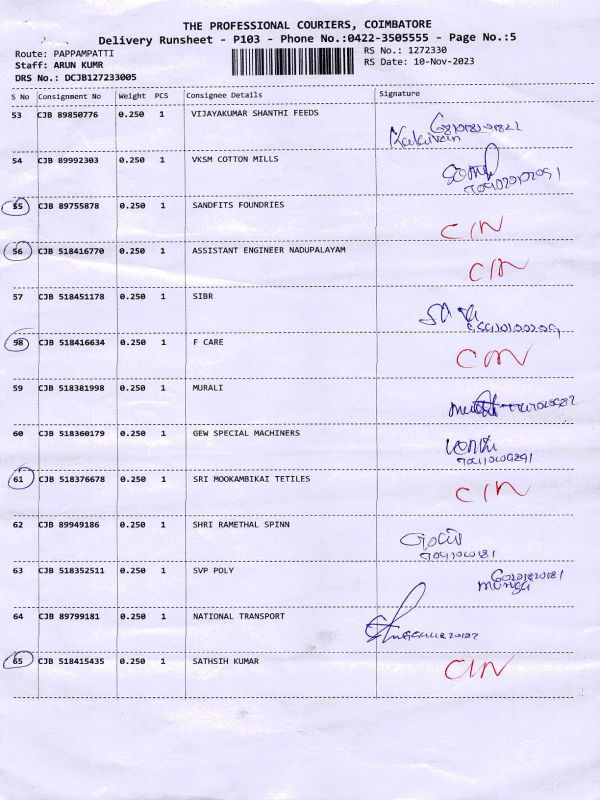 THE PROFESSIONAL COURIERS, COIMBATORE
Delivery Runsheet - P103 - Phone No.:0422-3505555 - Page No.:5
Route: PAPPAMPATTI
RS No.: 1272330
Staff: ARUN KUMR
RS Date: 10-Nov-2023
DRS No.: DCJB127233005
S No Consignment No Weight PCS Consignee Details Signature
53 CJB 89850776 0.250 1 VIJAYAKUMAR SHANTHI FEEDS
54 CJB 89992303 0.250 1 VKSM COTTON MILLS
55 CJB 89755878 0.250 1 SANDFITS FOUNDRIES
CIN
56 CJB 518416770 0.250 1 ASSISTANT ENGINEER NADUPALAYAM
CIN
57 CJB 518451178 0.250 1 SIBR
58 CJB 518416634 0.250 1 F CARE
CIN
59 CJB 518381998 0.250 1 MURALI
60 CJB 518360179 0.250 1 GEW SPECIAL MACHINERS
61 CJB 518376678 0.250 1 SRI MOOKAMBIKAI TETILES
CIN
62 CJB 89949186 0.250 1 SHRI RAMETHAL SPINN
63 CJB 518352511 0.250 1 SVP POLY
64 CJB 89799181 0.250 1 NATIONAL TRANSPORT
65 CJB 518415435 0.250 1 SATHSIH KUMAR
CIN